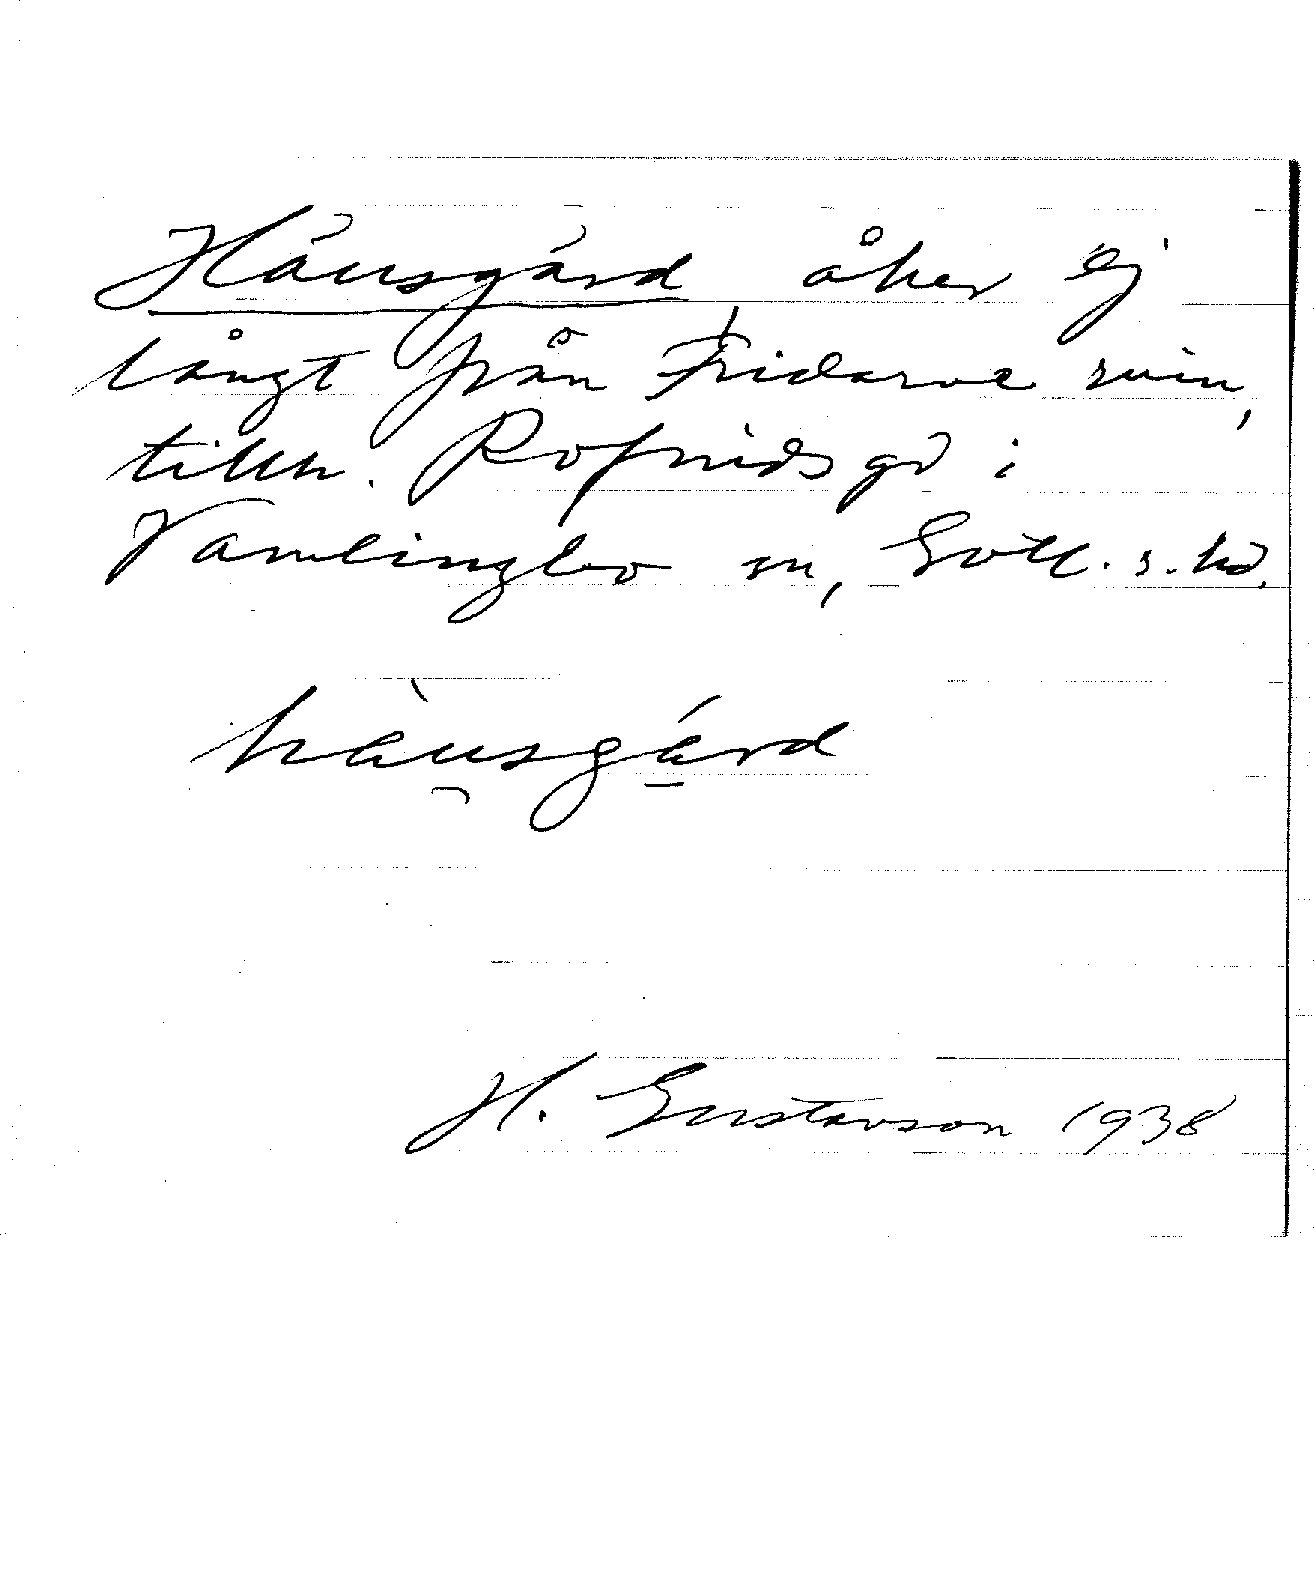 Hǻusgǻrd, åker ej
långt från Fridarve ruin,
tillh. Rofrids gd i
Vamlingbo sn, Gotl. s. hd.
hàu̯sgá̱rd
H. Gustavson 1938